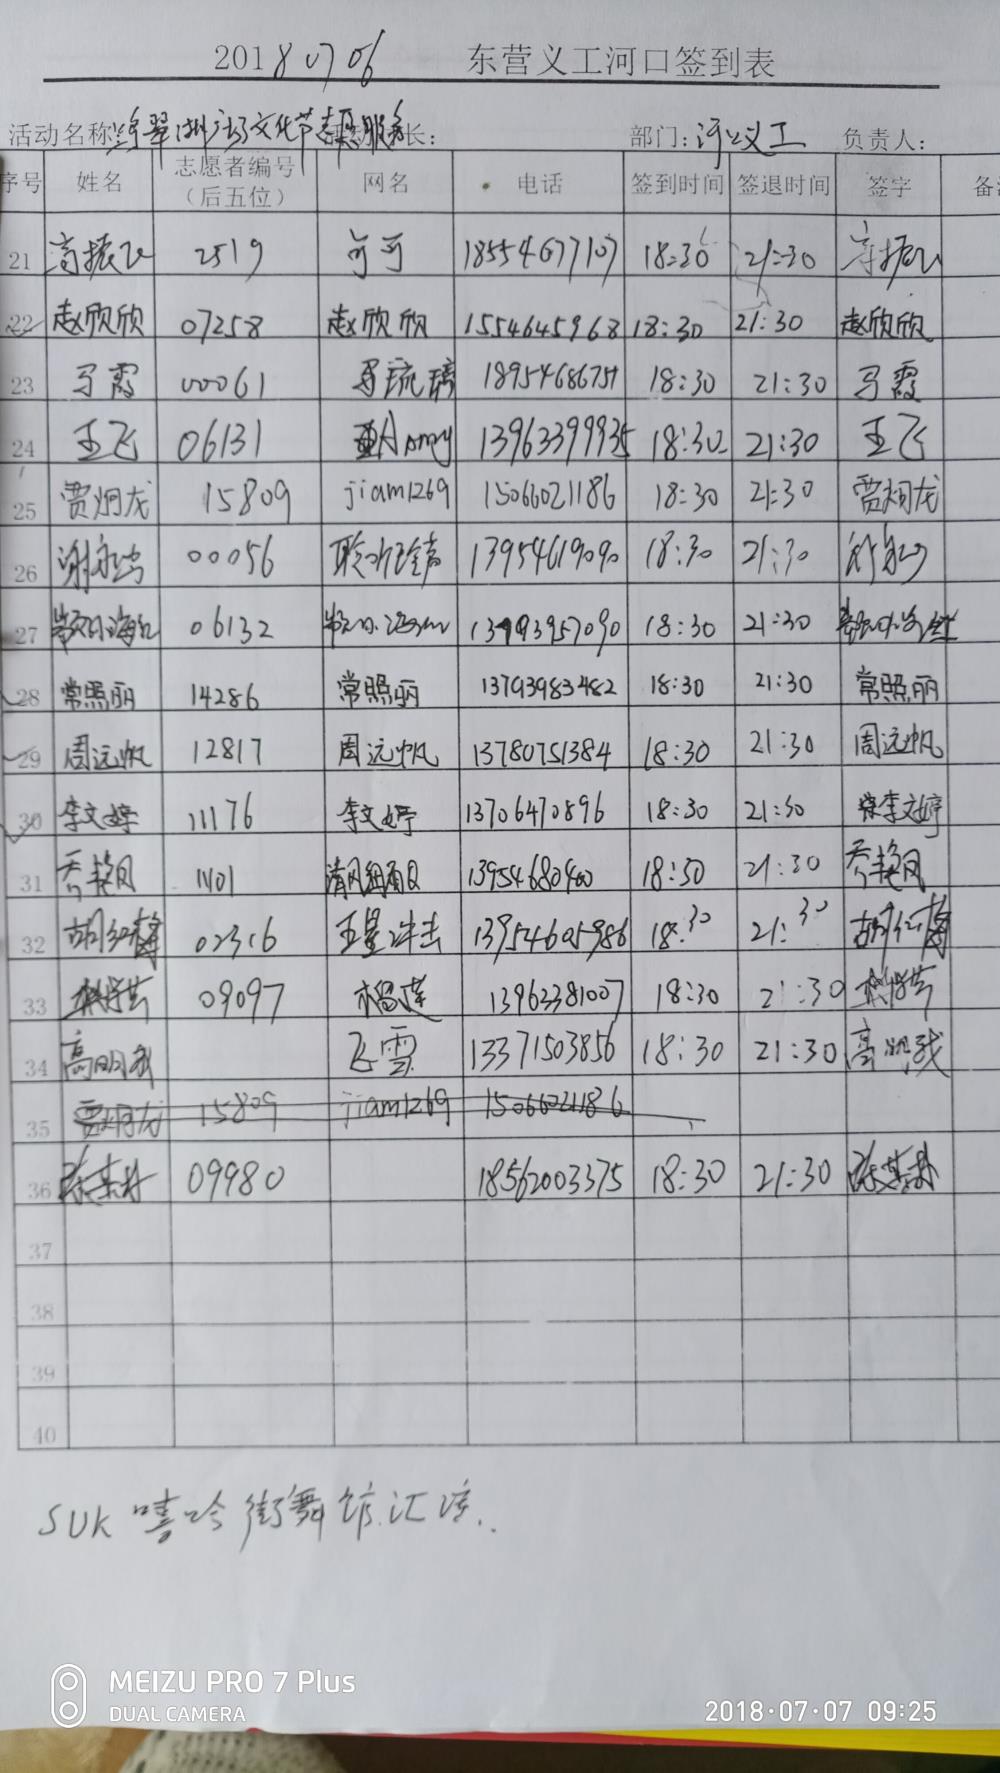 2018 07 06 东营义工河口签到表
活动名称: 广场文化节志愿服务 长: 部门: 河口义工 负责人:
序号 姓名 志愿者编号（后五位） 网名 电话 签到时间 签退时间 签字 备
21 高振飞 2519 可可 18554677107 18:30 21:30 高振飞
22 赵欣欣 07258 赵欣欣 1554645968 18:30 21:30 赵欣欣
23 马霞 00061 马琉璃 18954686751 18:30 21:30 马霞
24 王飞 06131 Amy 13963399935 18:30 21:30 王飞
25 贾炯龙 15809 jiam1269 15066021186 18:30 21:30 贾炯龙
26 00056 13954619090 18:30 21:30
27 06132 18:30 21:30
28 常照丽 14286 常照丽 13793983482 18:30 21:30 常照丽
29 周远帆 12817 周远帆 13780751384 18:30 21:30 周远帆
30 李文婷 11176 李文婷 13706470896 18:30 21:30 李文婷
31 乔艳凤 1401 清风 13954680400 18:30 21:30 乔艳凤
32 胡红梅 02316 13954605986 18:30 21:30 胡红梅
33 09097 13963381007 18:30 21:30
34 高明战 飞雪 13371503856 18:30 21:30 高明战
35 贾炯龙 15809 jiam1269 15066021186
36 09980 18562003375 18:30 21:30
37
38
39
40
SUK 嘻哈街舞馆汇演..
MEIZU PRO 7 Plus
DUAL CAMERA
2018-07-07 09:25